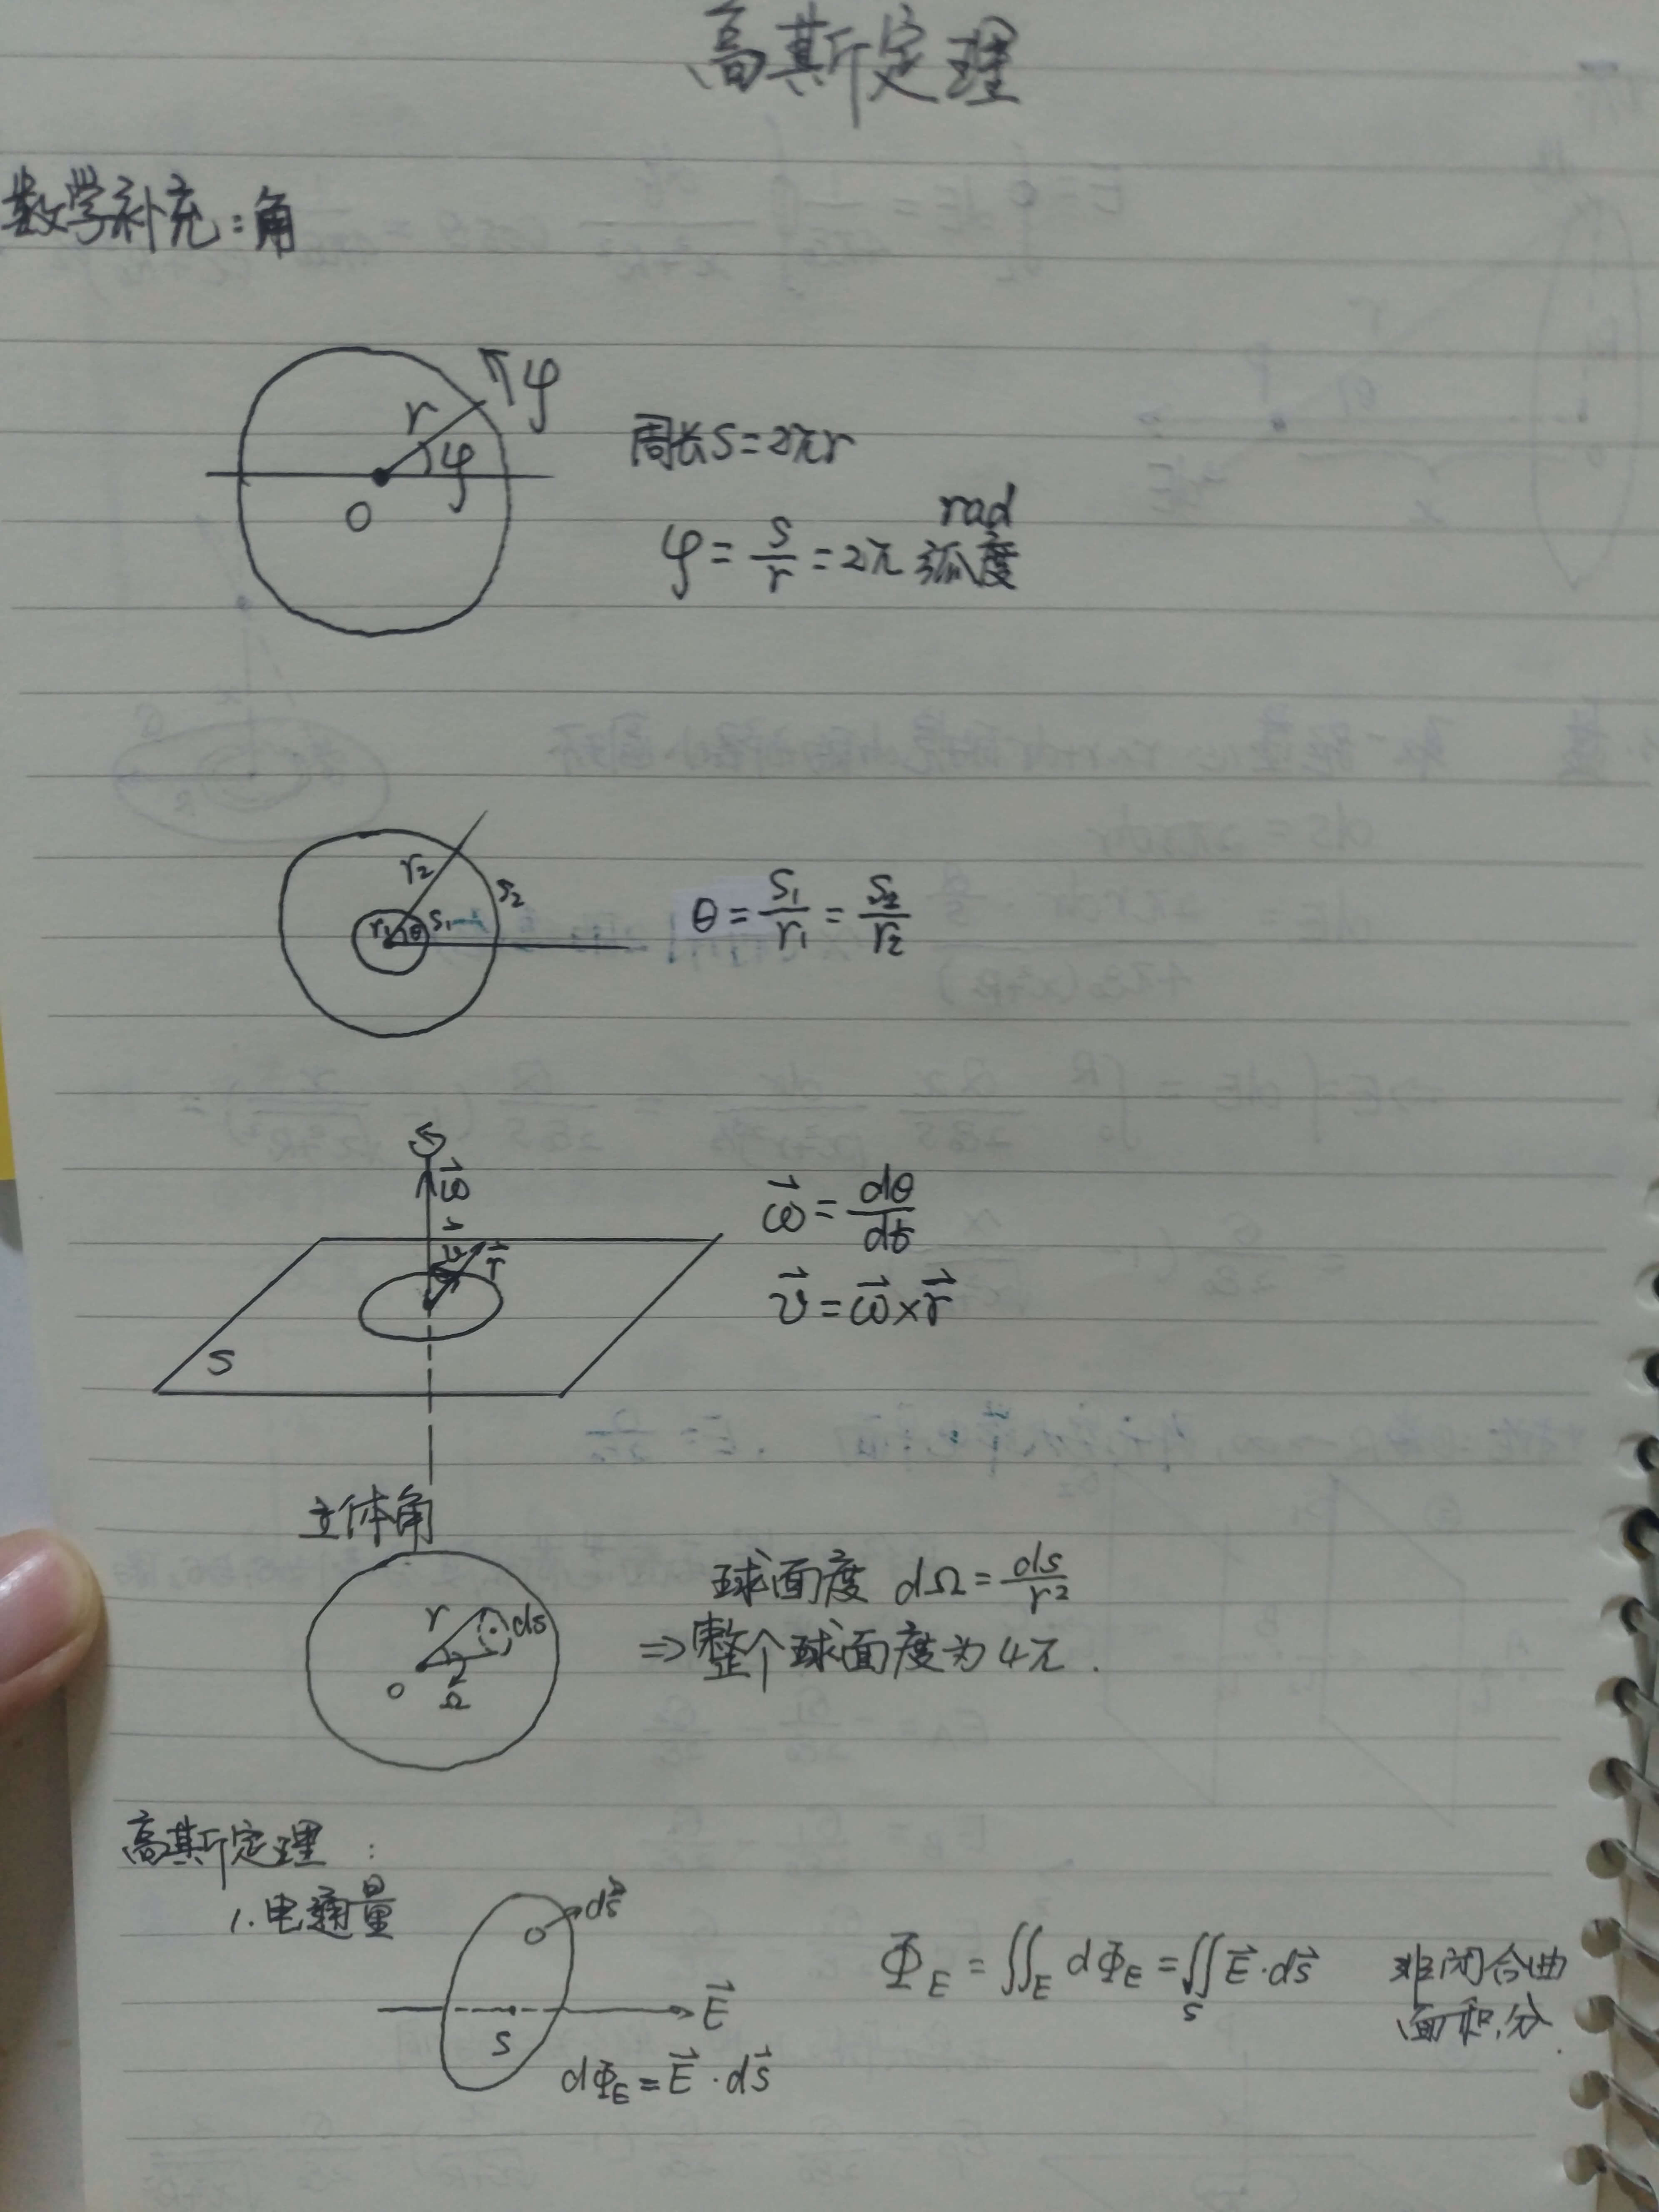 高斯定理
数学补充:角
r φ
φ
O
周长S=2πr
rad
φ=s/r=2π 弧度
r₂
S₂
r₁ θ S₁
θ=S₁/r₁=S₂/r₂
ω⃗
v⃗ r⃗
S
ω⃗=dθ/dt
v⃗=ω⃗×r⃗
立体角
r ds
O Ω
球面度 dΩ=ds/r²
⇒整个球面度为4π.
高斯定理:
1.电通量
ds⃗
E⃗
S
dΦ_E=E⃗·ds⃗
Φ_E=∬_E dΦ_E=∬_S E⃗·ds⃗ 非闭合曲
面积分.